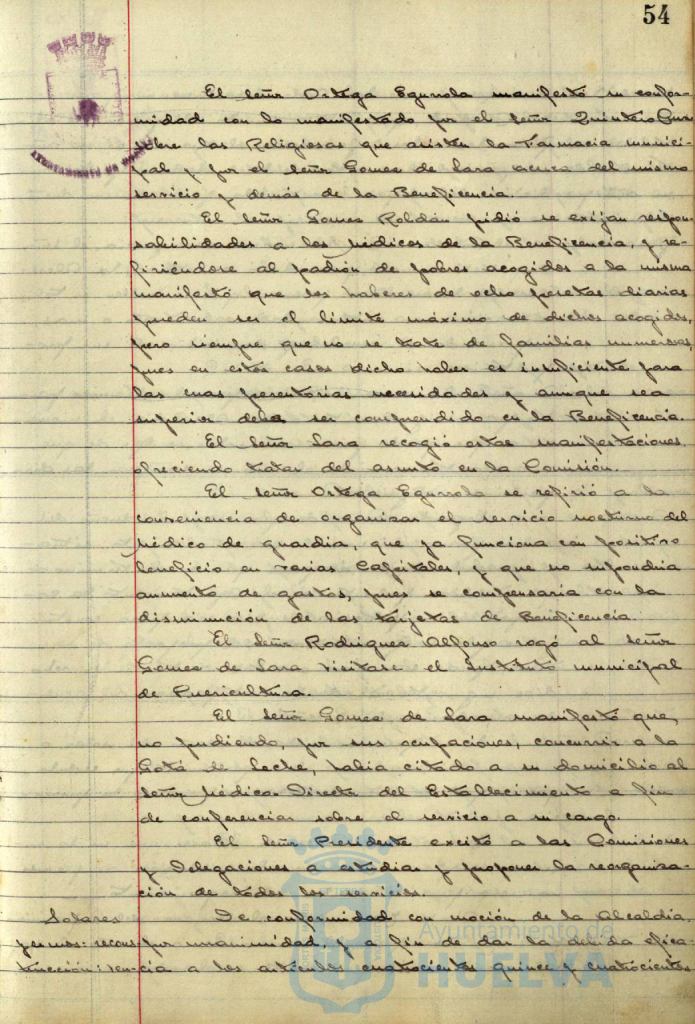 54
El señor Ortega Egurrola manifestó su confor-
midad con lo manifestado por el señor Quintero
sobre las Religiosas que asisten la Farmacia munici-
pal y por el señor Gomez de Lara acerca del mismo
servicio y demás de la Beneficencia.
El señor Gomez Roldán pidió se exijan respon-
sabilidades a los Médicos de la Beneficencia, y re-
firiéndose al padrón de pobres acogidos a la misma
manifestó que los haberes de ocho pesetas diarias
pueden ser el límite máximo de dichos acogidos,
pero siempre que no se trate de familias numerosas,
pues en estos casos dicho haber es insuficiente para
las mas perentorias necesidades y aunque sea
superior debe ser comprendido en la Beneficencia.
El señor Lara recogió estas manifestaciones,
ofreciendo tratar del asunto en la Comisión.
El señor Ortega Egurrola se refirió a la
conveniencia de organizar el servicio nocturno del
Médico de guardia, que ya funciona con positivo
beneficio en varias Capitales, y que no supondria
aumento de gastos, pues se compensaría con la
disminución de las tarjetas de Beneficencia.
El señor Rodriguez Alfonso rogó al señor
Gomez de Lara visitase el Instituto municipal
de Puericultura.
El señor Gomez de Lara manifestó que,
no pudiendo, por sus ocupaciones, concurrir a la
Gota de Leche, habia citado a su domicilio al
señor Médico-Director del Establecimiento a fin
de conferenciar sobre el servicio a su cargo.
El señor Presidente excitó a las Comisiones
y Delegaciones a estudiar y proponer la reorganiza-
ción de todos los servicios.
Solares De conformidad con moción de la Alcaldia,
yermos: por unanimidad, y a fin de dar la debida efica-
cia a los artículos cuatrocientos quince y cuatrocientos
Ayuntamiento de
HUELVA